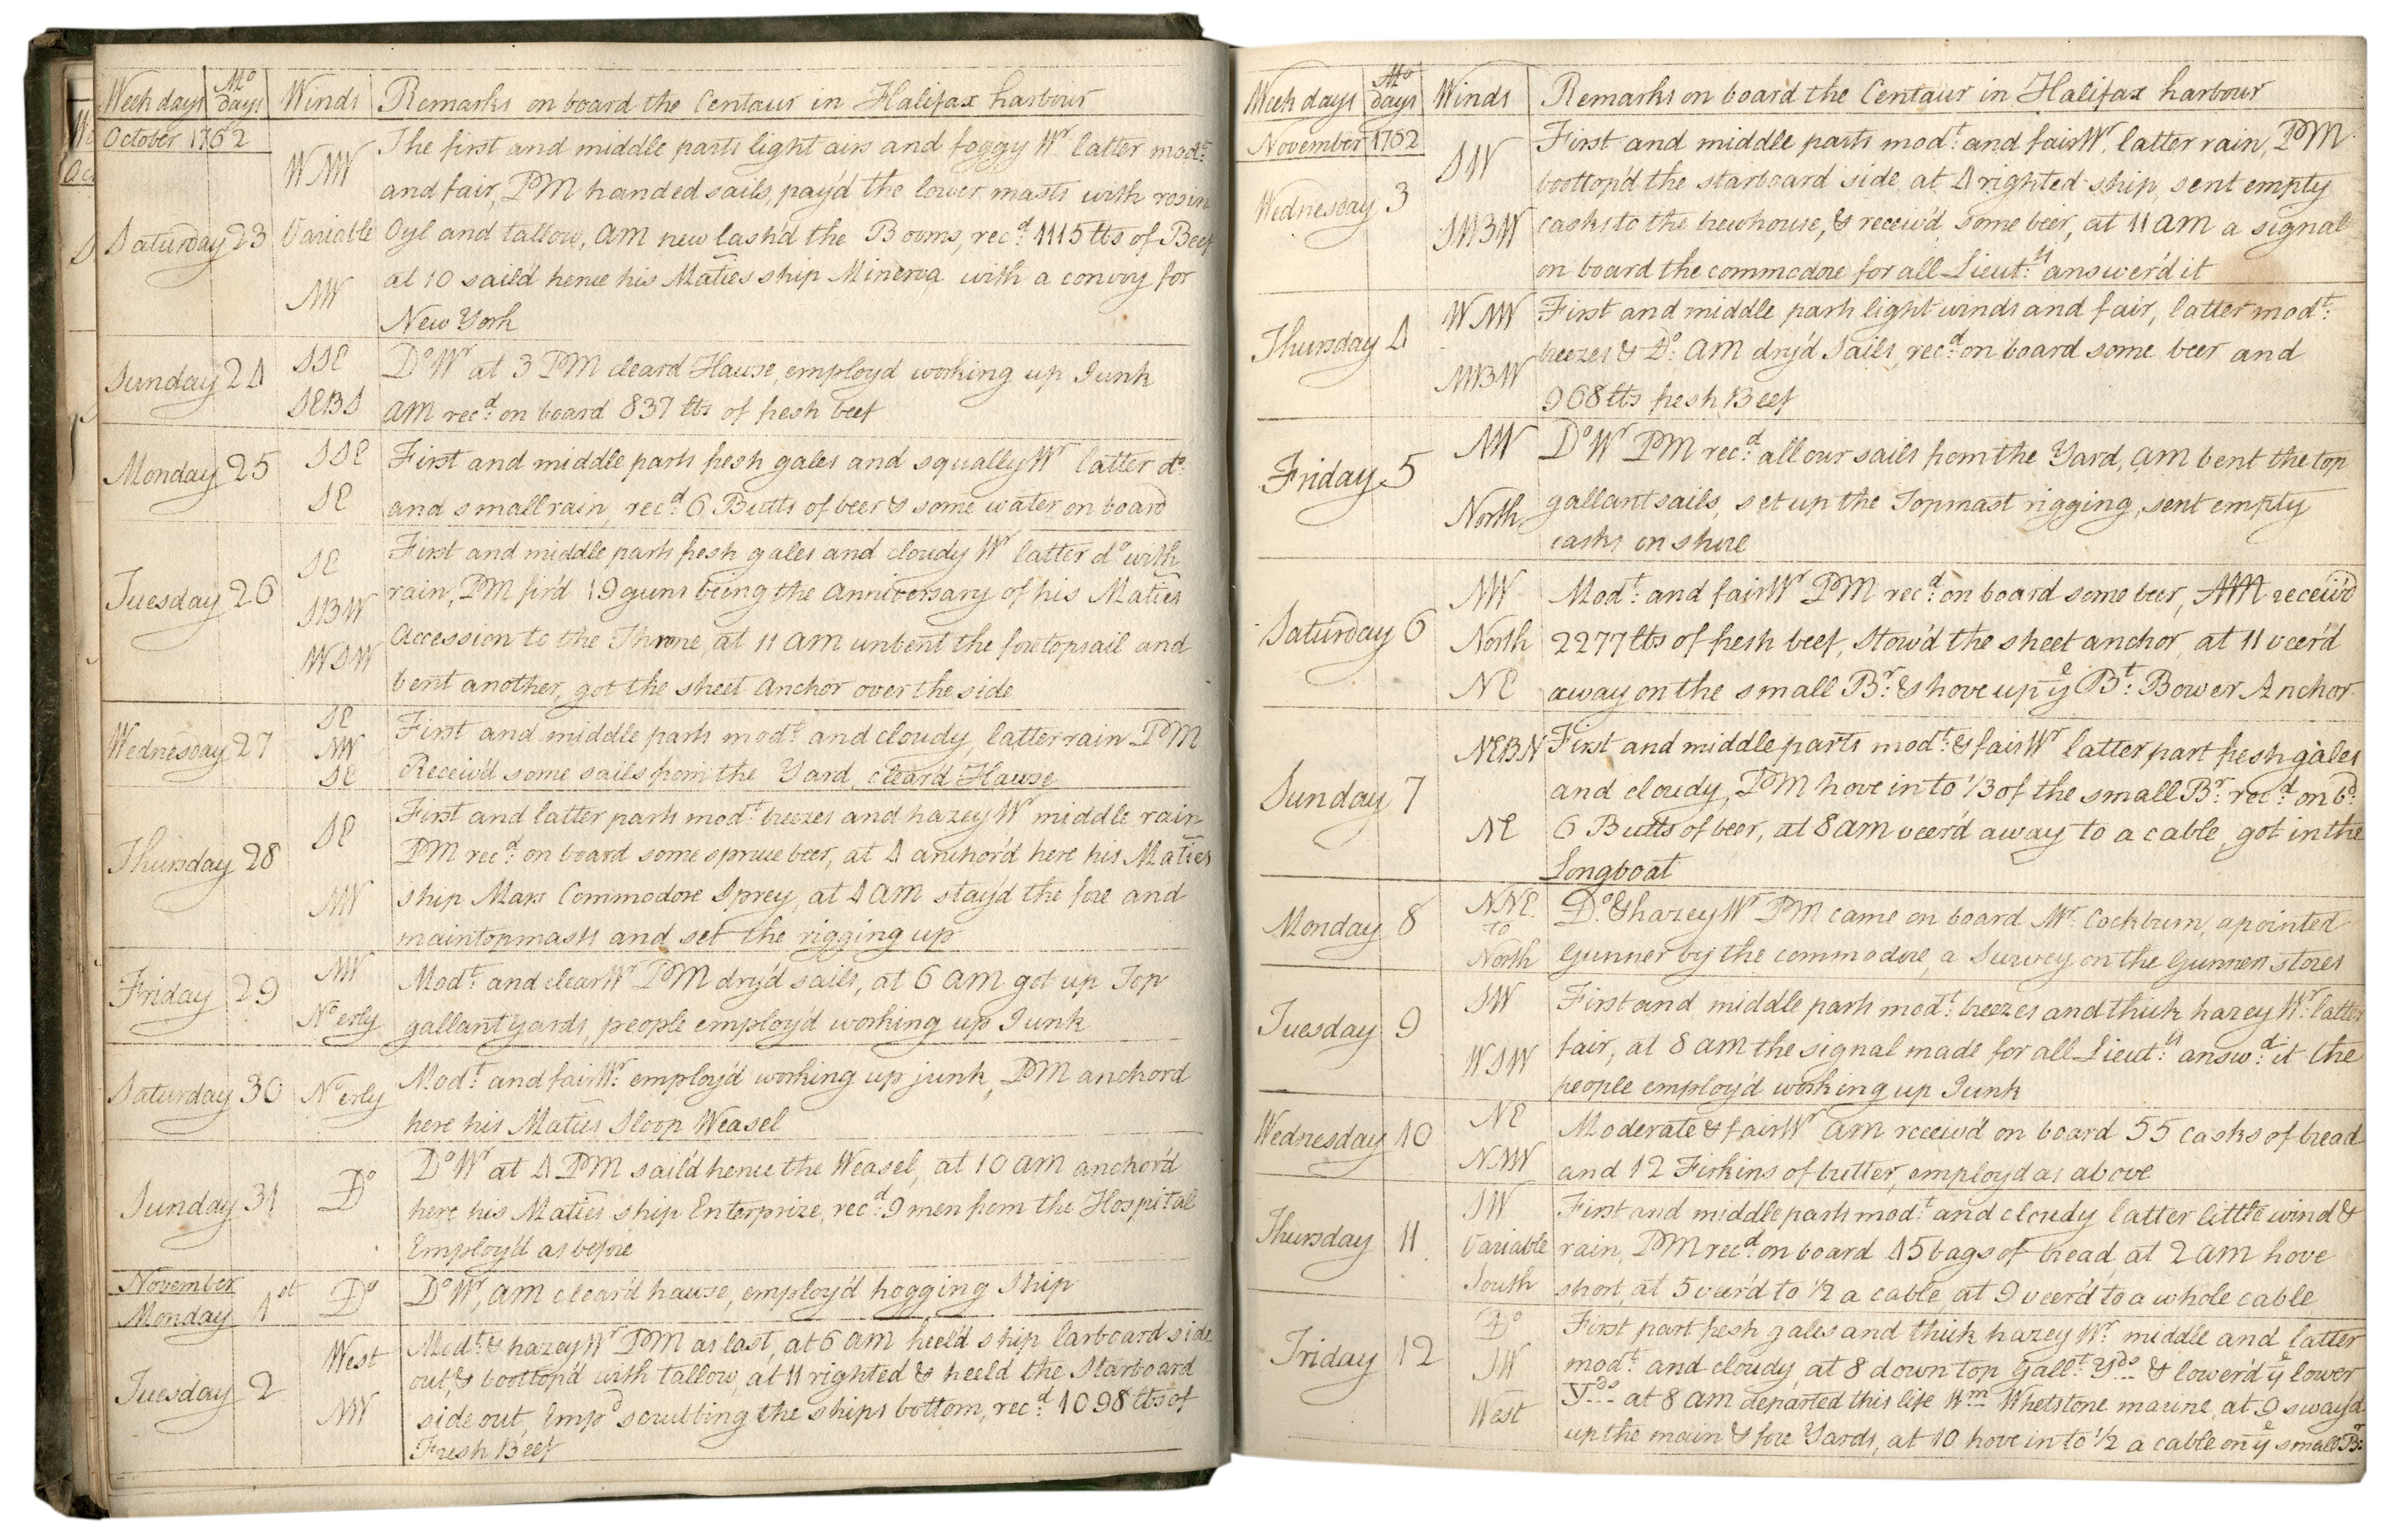 Week days Mo days Winds Remarks on board the Centaur in Halifax harbour
October 1762
The first and middle parts light airs and foggy Wr latter modt:
WNW
and fair, PM handed sails, pay'd the lower masts with rosin
Saturday 23 Variable Oyl and tallow, AM new lash'd the Booms, recd: 1115 lbs of Beef
at 10 sail'd hence his Maties ship Minerva with a convoy for
NW
New York
SSE Do Wr at 3 PM cleard Hawse, employd working up Junk
Sunday 24
SEBS AM recd: on board 837 lbs of fresh beef
SSE First and middle parts fresh gales and squally Wr latter do:
Monday 25
SE and small rain, recd: 6 Butts of beer & some water on board
SE First and middle parts fresh gales and cloudy Wr latter do with
Tuesday 26 rain, PM fir'd 19 guns being the Anniversary of his Maties
SBW
WSW Accession to the Throne, at 11 AM unbent the foretopsail and
bent another, got the sheet Anchor over the side
SE First and middle parts modt: and cloudy, latter rain PM
Wednesday 27 NW
SE Receiv'd some sails from the Yard, cleard Hawse
SE First and latter parts modt: breezes and hazey Wr middle rain
Thursday 28 PM recd: on board some spruce beer, at 4 anchor'd here his Maties
NW ship Mars Commodore Sprey, at 4 AM stay'd the fore and
maintopmasts and set the rigging up
NW Modt: and clear Wr PM dry'd sails, at 6 AM got up Top
Friday 29
No erly gallant yards, people employ'd working up Junk
Saturday 30 No erly Modt: and fair Wr: employ'd working up junk, PM anchord
here his Maties Sloop Weasel
Do Wr at 4 PM sail'd hence the Weasel, at 10 AM anchor'd
Sunday 31 Do here his Maties ship Enterprize, recd: 9 men from the Hospital
Employ'd as before
November
Monday 1st Do Do Wr, AM clear'd hawse, employ'd hogging Ship
West Modt: & hazey Wr PM as last, at 6 AM heel'd ship larboard side
Tuesday 2 out, & boottop'd with tallow, at 11 righted & heel'd the Starboard
NW side out, Empd scrubbing the ships bottom, recd: 1098 lbs of
Fresh Beef
Week days Mo days Winds Remarks on board the Centaur in Halifax harbour
November 1762
SW First and middle parts modt: and fair Wr. latter rain, PM
Wednesday 3 boottop'd the starboard side, at 4 righted ship, sent empty
SWBW casks to the brewhouse, & receiv'd some beer, at 11 AM a signal
on board the commodore for all Lieuts: answer'd it
WNW First and middle parts light winds and fair, latter modt:
Thursday 4 breezes & Do: AM dry'd Sails, recd: on board some beer and
NWBW
968 lbs fresh Beef
NW Do Wr PM recd: all our sails from the Yard, AM bent the top
Friday 5
North gallant sails, set up the Topmast rigging, sent empty
casks on shore
NW Modt: and fair Wr PM recd: on board some beer, AM receiv'd
Saturday 6 North 2277 lbs of fresh beef, Stow'd the sheet anchor, at 11 veer'd
NE away on the small Br: & hove up ye Bt: Bower Anchor
NEBN First and middle parts modt: & fair Wr latter part fresh gales
Sunday 7 and cloudy, PM hove in to 1/3 of the small Br: recd: on bd:
NE 6 Butts of beer, at 8 AM veer'd away to a cable, got in the
Longboat
NNE Do: & hazey Wr PM came on board Mr Cockburn, apointed
Monday 8 to
North Gunner by the commodore, a Survey on the Gunners stores
SW First and middle parts modt: breezes and thick hazey Wr: latter
Tuesday 9
WSW fair, at 8 AM the signal made for all Lieuts: answd: it the
people employ'd working up Junk
NE Moderate & fair Wr AM receiv'd on board 55 casks of bread
Wednesday 10
NNW and 12 Firkins of butter, employd as above
SW First and middle parts modt: and cloudy latter little wind &
Thursday 11 Variable rain, PM recd: on board 45 bags of bread, at 2 AM hove
South short, at 5 veer'd to 1/2 a cable, at 9 veer'd to a whole cable
Do First part fresh gales and thick hazey Wr: middle and latter
Friday 12 SW modt: and cloudy, at 8 down top Gallt: Yds & lower'd ye lower
West Yds at 8 AM departed this life Wm Whetstone marine, at 9 sway'd
up the main & fore Yards, at 10 hove in to 1/2 a cable on ye small Br: